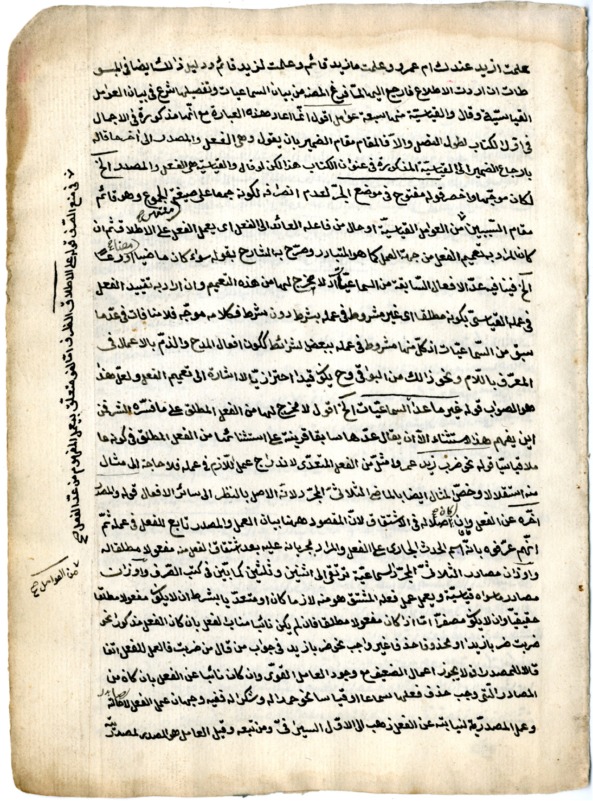 علمت ازيد عندك ام عمرو وعلمت ما زيد قائم وعلمت لزيد قائم ودليل ذلك ايضا في المطو
طلات ان اردت الاطلاع فارجع اليها لما فرغ المصنف من بيان السماعيات وتفصيلها شرع في بيان العوامل
القياسية وقال والقياسية منها سبعة عوامل اقول انما اعاد هذه العبارة مع انها مذكورة في الاجمال
في اول الكتاب لطول الفصل والا فالمقام مقام الضمير بان يقول وهي الفعل والمصدر الى آخرها قاله
بارجاع الضمير الى القياسية المذكورة في عنوان الكتاب هذا لكن لو قال والقياسية هي الفعل والمصدر الخ
لكان موجها واخصر قوله مفتوح في موضع الجر لعدم انصرافه لكونه جمعا على صيغة الجموع وهو قائم
مقام السببين من العوامل القياسية او حال من فاعله العائد الى الفعل اى يعمل الفعل على الاطلاق ثم ان
كان المراد به تعميم الفعل من جهة العمل كما هو المتبادر وصرح به الشارح بقوله سواء كان ماضيا او
الخ فينافيه عد الافعال السابقة من السماعيات اذ لا مخرج لها من هذا التعميم وان اراد به تقييد الفعل
في عمله القياسى بكونه مطلقا اى غير مشروط في عمله بشرط دون شرط فكلامه موجه فلا منافات في عد ما
سبق من السماعيات اذ كل منها مشروط في عمله ببعض الشرائط ككون افعال المدح والذم بالاعمال في
المعرف باللام ونحو ذلك من البواقي وح يكون قيدا احترازيا لا اشارة الى تعميم الفعل ولعل هذا
هو الصواب قوله غير ما عد السماعيات الخ اقول لا مخرج لها من الفعل المطلق على ما فسره الشر فمن
اين يفهم هذا استثناء الا ان يقال عدها سابقا قرينة على استثنائها من الفعل المطلق في كونه عا
ملا قياسيا قوله نحو ضرب زيد عمرا مثل من الفعل المتعدى لاندراج عمل اللازم في عمله فلا حاجة الى مثال
منه استقلالا وخص المثال ايضا بالماضي الثلاثي المجرد لانه الاصل بالنظر الى سائر الافعال قوله والمصدر
اخره عن الفعل وان كان اصلا له في الاشتقاق لان المقصود ههنا بيان العمل والمصدر تابع للفعل في عمله ثم
انهم عرفوه بانه اسم الحدث الجارى على الفعل والمراد بجريانه عليه بعد اشتقاق الفعل منه مفعولا مطلقا له
واوزان مصادر الثلاثي المجرد السماعية ترتقى الى اثنين وثلثين كما بين في كتب الصرف واوزان
مصادر ما سواه قياسية ويعمل عمل فعله المشتق هو منه لازما كان او متعديا بشرط ان لا يكون مفعولا مطلقا
حقيقيا وان لا يكون مصغرا اما اذا كان مفعولا مطلقا فان لم يكن نائبا مناب الفعل بان كان الفعل مذكورا نحو
ضربت ضربا زيدا او محذوفا حذفا غير واجب نحو ضربا زيد في جواب من قال من ضربت فالعمل للفعل اتفا
قا لا للمصدر اذ لا يجوز اعمال الضعيف مع وجود العامل القوى وان كان نائبا عن الفعل بان كان من
المصادر التي وجب حذف فعلها سماعا او قياسا نحو حمدا له وشكرا له ففيه وجهان عمل الفعل لاصالته
وعمل المصدرية لنيابته عن الفعل ذهب الى الاول السيرافي ومن تبعه وقيل العامل هو المصدر لمصدريته
في منع الصرف قوله على الاطلاق الظرف اما لغو متعلق بيعمل المفهوم من عد الفعل صح
من العوامل صح